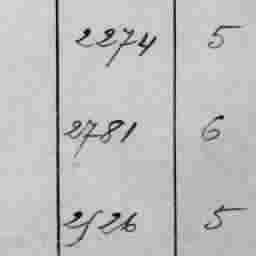 2274 5
2781 6
2526 5